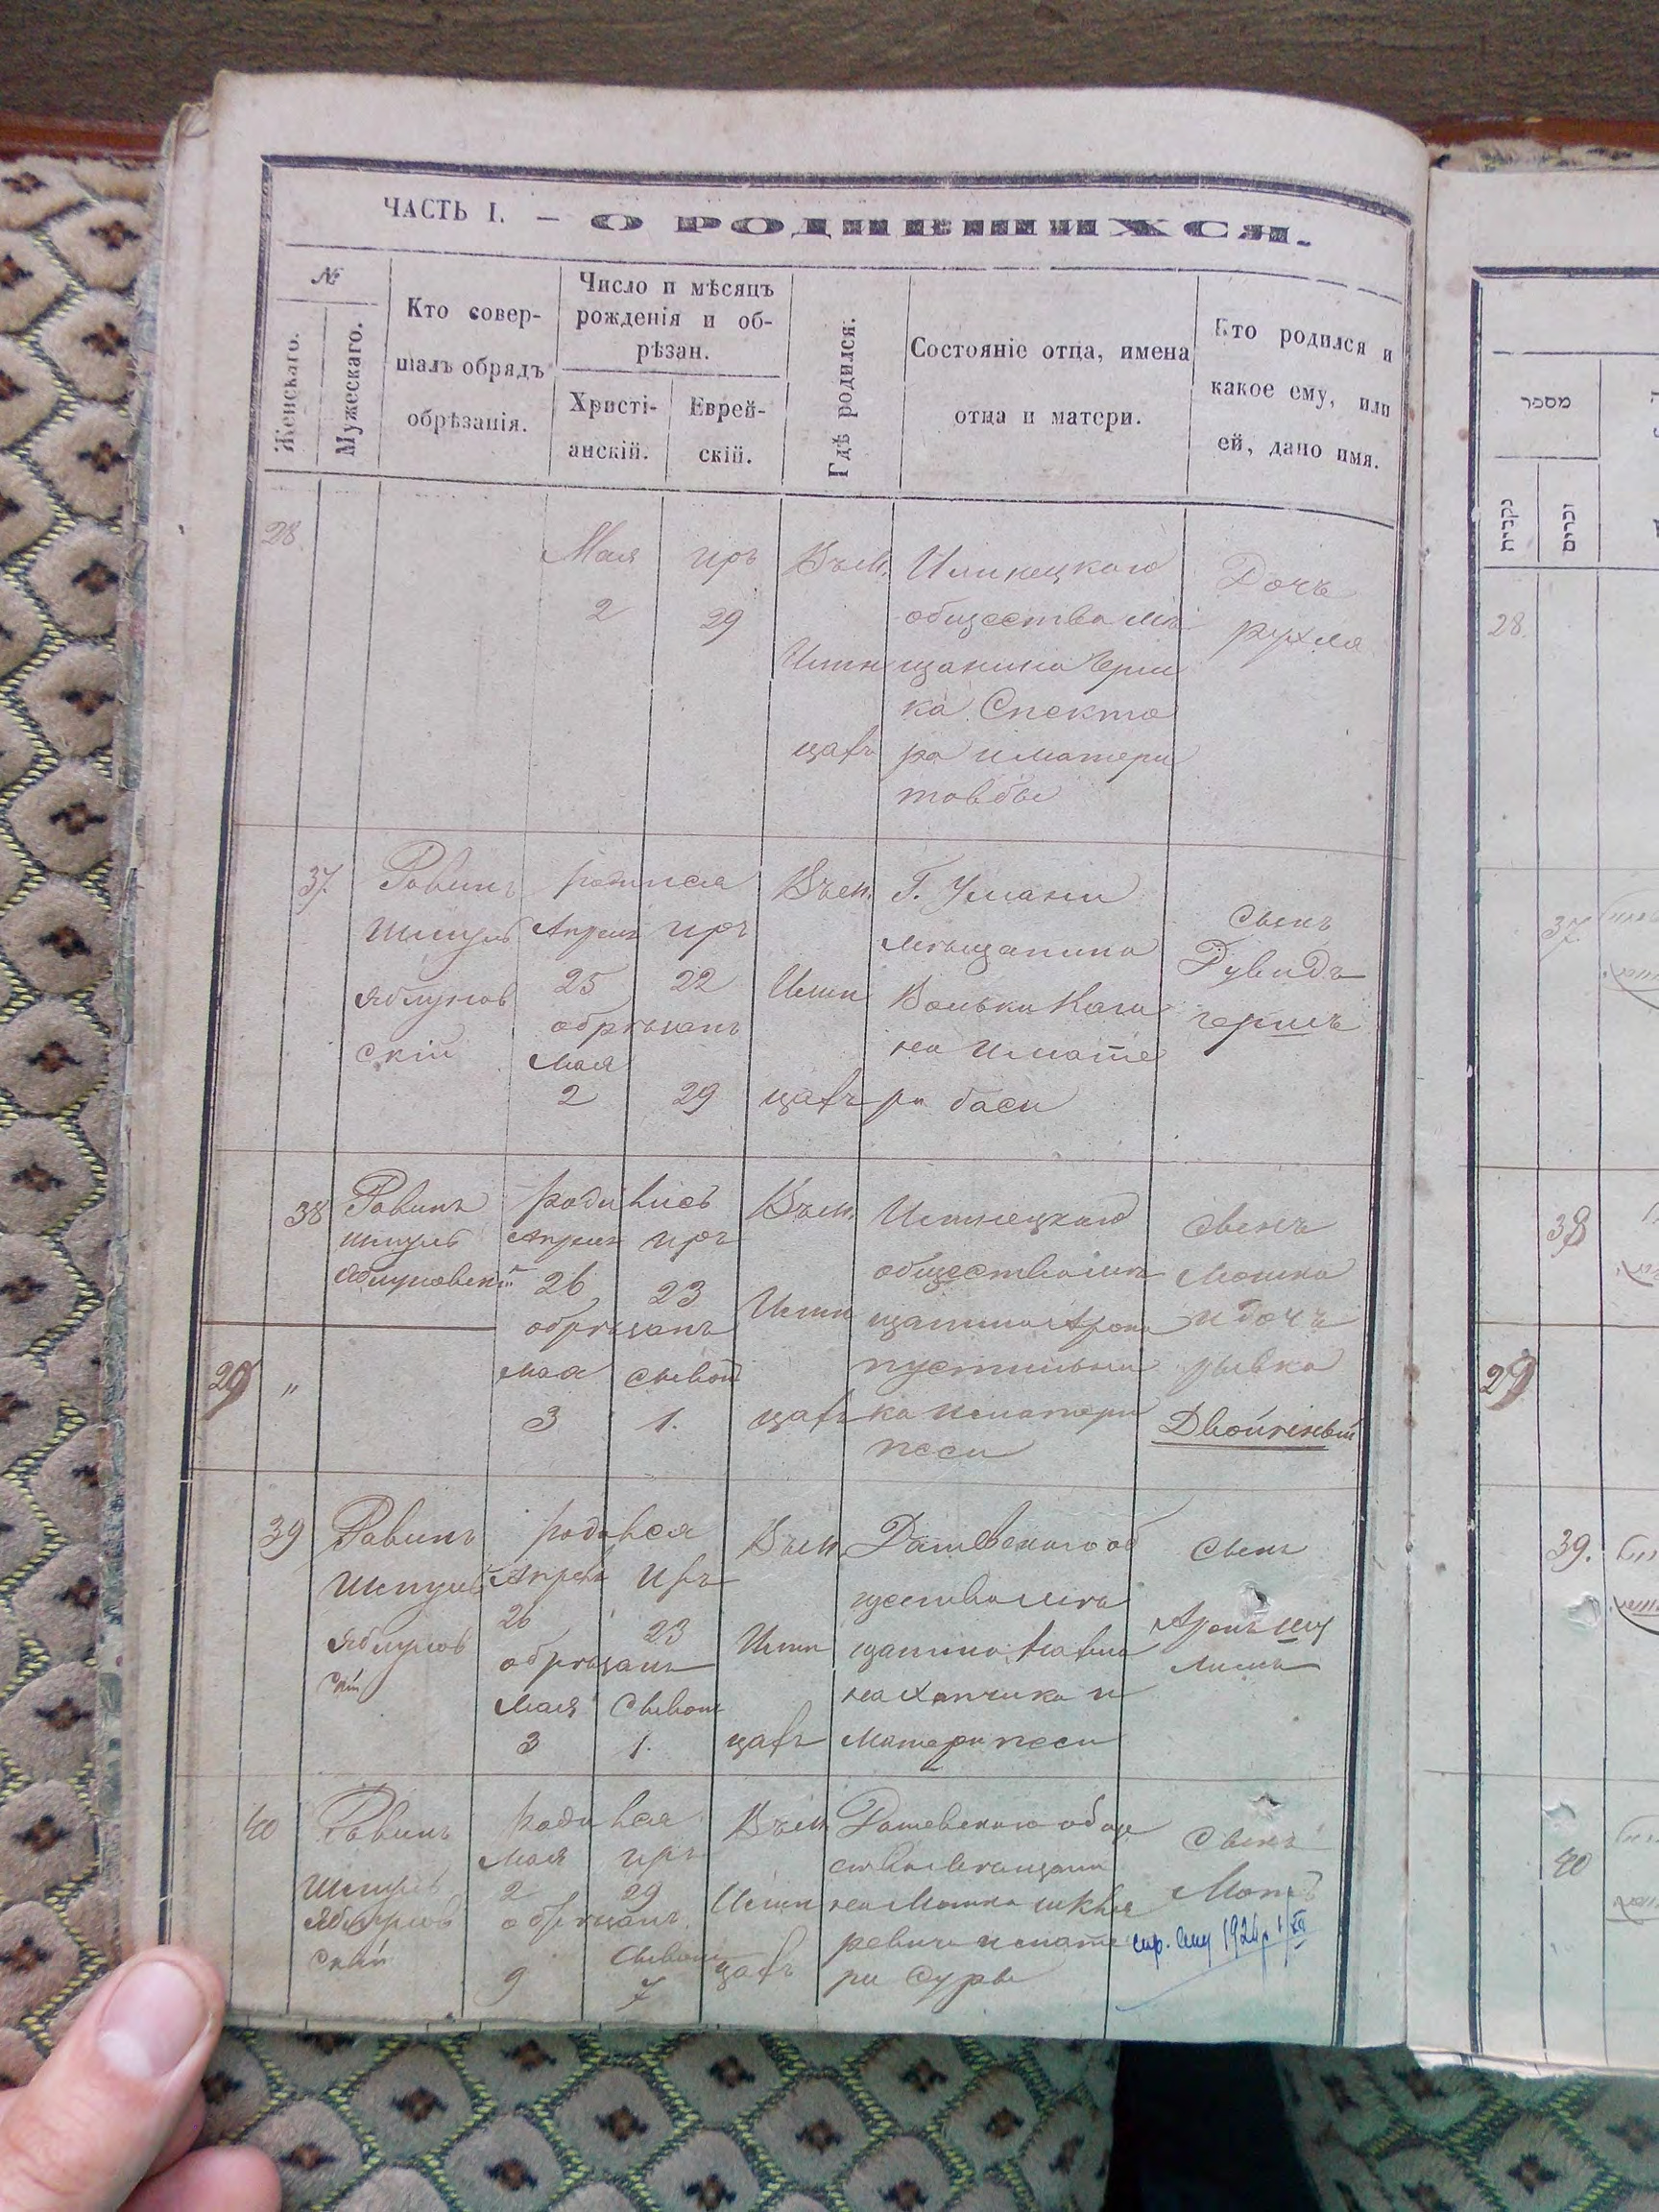 ЧАСТЬ I. — О РОДИВШИХСЯ.
№
Женскаго.
Мужескаго.
Кто совер-
шалъ обрядъ
обрѣзанія.
Число и мѣсяцъ
рожденія и об-
рѣзан.
Христі-
анскій.
Еврей-
скій.
Гдѣ родился.
Состояніе отца, имена
отца и матери.
Кто родился и
какое ему, или
ей, дано имя.
28
Мая
2
иръ
29
Въ м.
Илин
цахъ
Илинецкаго
общества мѣ
щанина Герш
ка Спекто
ра и матери
товбы
Дочь
рухля
37
Равинъ
Шмуль
Яблунов
скій
родился
Апреля иръ
25 22
обрезанъ
мая
2 29
Въ м.
Илин
цахъ
Г. Умани
мѣщанина
Волька Кага
на и мате
ри баси
Сынъ
Дувидъ
гершъ
38
Равинъ
шмуль
Яблуновскій
родились
Апреля иръ
26 23
обрѣзанъ
мая сывонъ
3 1.
Въ м.
Илин
цахъ
Илинецкаго
общества мѣ
щанина Арона
пустильни
ка и матери
песи
сынъ
мошко
и дочь
рывка
Двойнѣвый
29 "
39
Равинъ
Шмуль
Яблунов
скій
родился
Апреля Иръ
26 23
обрѣзанъ
мая Сывонъ
3 1.
Въ м.
Илин
цахъ
Дашевскаго об
щества мѣ
щанина
на Хапчика и
матери песи
Сынъ
Аронъ шу
лимъ
40
Равинъ
Шмуль
Яблунов
скій
родился
мая иръ
2 29
обрѣзанъ
Сывонъ
9 7
Въ м.
Илин
цахъ
Дашевскаго обще
ства мѣщани
на Мошка шкля
ревича и мате
ри Суры
Сынъ
1924
מספר
נקבות
זכרים
28.
37.
38
29
39.
40